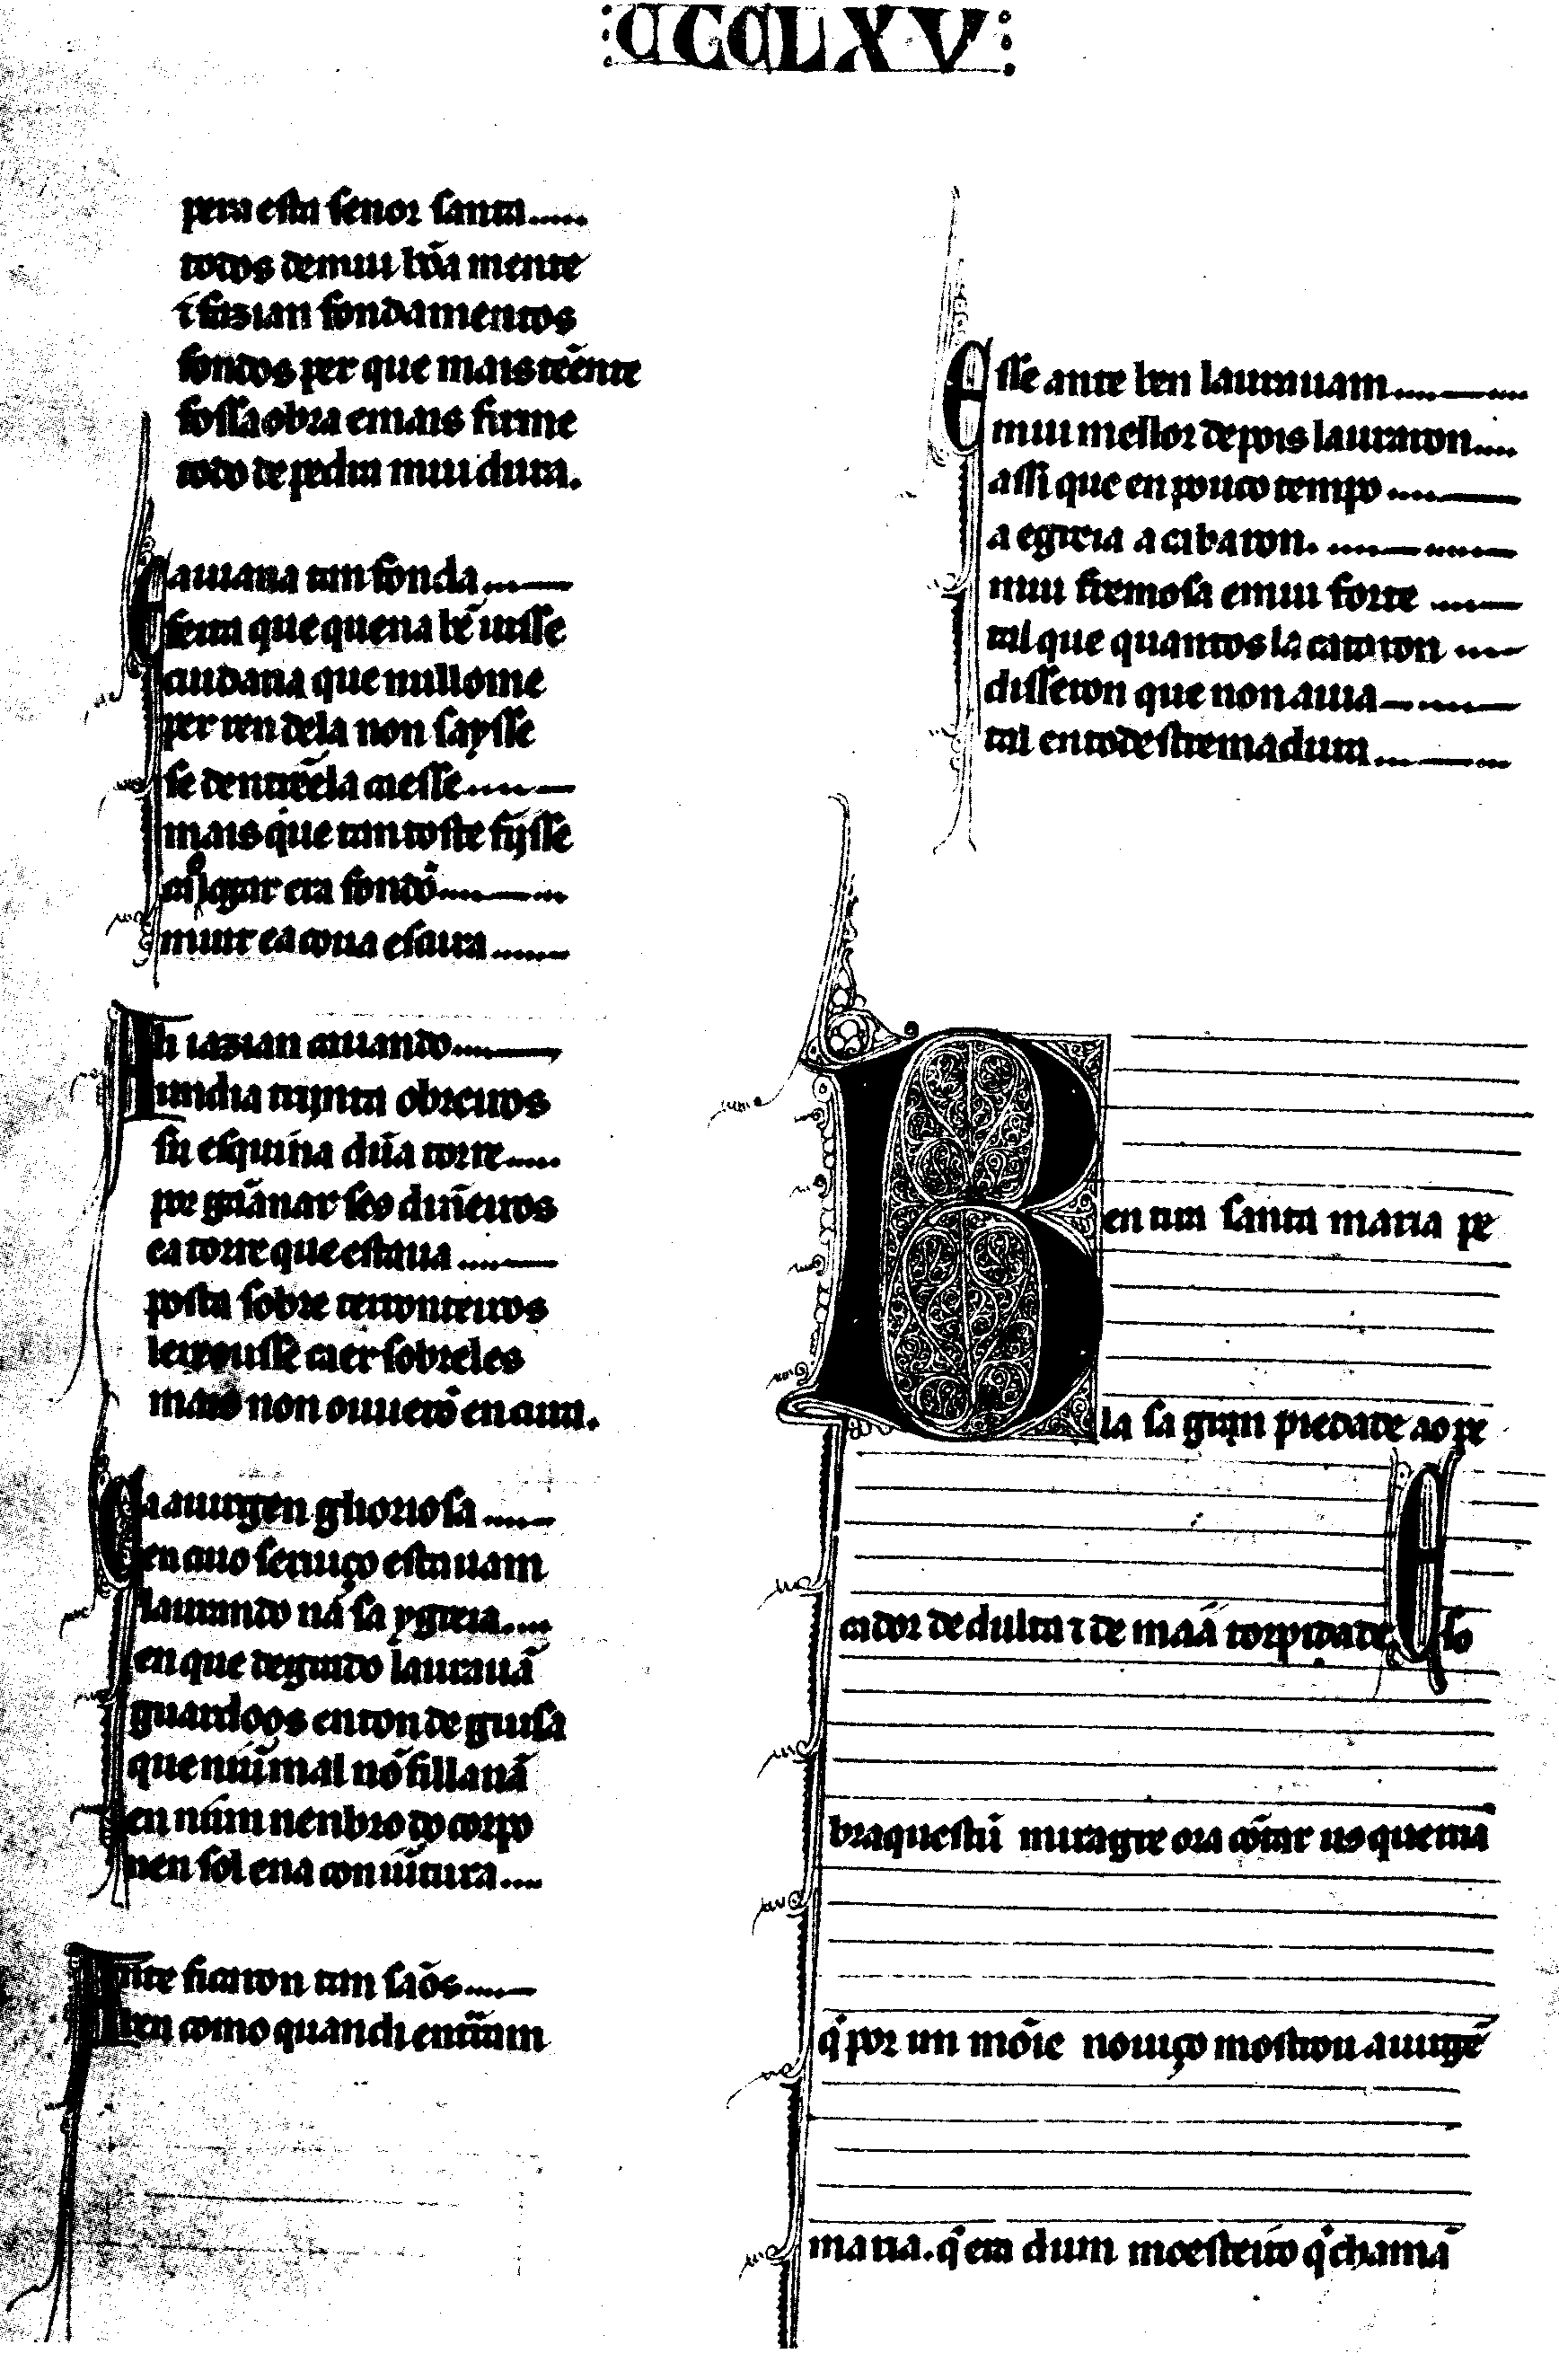 CCCLXV
pera esta señor santa
todos de mui bõa mente
⁊ fazian fondamentos
fondos per que mais tẽente
foss a obra e mais firme
todo de pedra mui dura.
Cauiana tan fonda
feita que quena bẽ uisse
cuidaria que null ome
per ren dela non saysse
se dentrẽ ela caesse
mais que tan toste fijsse
era fondo
e a coua escura
Ali iazian cauando
un dia triinta obreiros
su esquina dũa torre
por gãanar seos dinneiros
e a torre que estaua
posta sobre terronteiros
leixousse caer sobreles
mais non ouuerõ en cura.
Ca a uirgen glioriosa
en cuo seruiço estauam
laurando na sa ygreia
en que de grado laurauã
guardoos enton de guisa
que niũ mal nõ fillauã
en niun nenbro do corpo
nen sol ena conuĩtura
Ante ficaron tan sãos
ben como quand i entrarum
Esse ante ben laurauam
mui mellor depois lauraron
assi que en pouco tempo
a egreia acabaron.
mui fremosa e mui forte
tal que quantos la cataron
disseron que non auia
tal en tod estremadura
Ben tira santa maria pe
la sa gran piedade ao pe
cador de dulta ⁊ de maã torpidade E so
braquestũ miragre ora cõtar uos queria
q̃ por un mõie nouiço mostrou a uirgẽ
maria. q̃ era dum moesteiro q̃ chamã